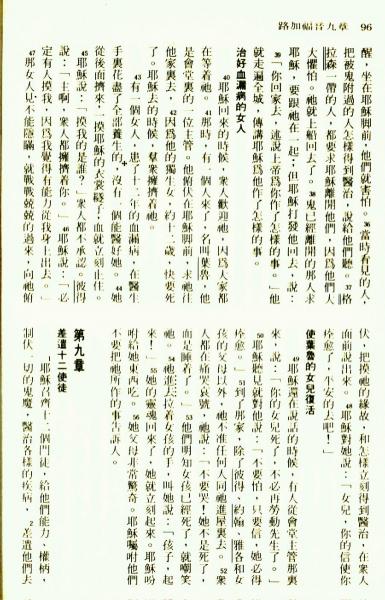 路加福音九章 96
醒,坐在耶穌脚前,他們就害怕。36當時看見的人,
把被鬼附過的人怎樣得到醫治,說給他們聽。37格
拉森一帶的人,都要求耶穌離開他們,因爲他們大
大懼怕。祂就上船回去了。38鬼已經離開的那人求
耶穌,要跟祂在一起;但耶穌打發他回去,說:
39「你回家去,述說上帝爲你作了怎樣的事。」他
就走遍全城,傳講耶穌爲他作了怎樣的事。
治好血漏病的女人
40耶穌回來的時候,衆人歡迎祂,因爲大家都
在等着祂。41那時,有一個人來了,名叫葉魯,他
是會堂裏的一位主管。他俯伏在耶穌脚前,求祂往
他家裏去,42因爲他的獨生女,約十二歲,快要死
了。耶穌去的時候,羣衆擁擠着祂。
43有一個女人,患了十二年的血漏病,在醫生
手裏花盡了全部養生的,沒有一個能醫好她。44她
從後面擠來,一摸耶穌的衣裳繸子,血就立刻止住。
45耶穌說:「摸我的是誰?」衆人都不承認。彼得
說:「主啊,衆人都擁擠着你。」46耶穌說:「必
定有人摸我,因爲我覺得有能力從我身上出去。」
47那女人見不能隱瞞,就戰戰兢兢的過來,向祂俯
伏,把摸祂的緣故,和怎樣立刻得到醫治,在衆人
面前說出來。48耶穌對她說:「女兒,你的信使你
痊愈了,平安的去吧!」
使葉魯的女兒復活
49耶穌還在說話的時候,有人從會堂主管那裏
來,說:「你的女兒死了,不必再勞動先生了。」
50耶穌聽見就對他說:「不要怕,只要信,她必得
痊愈。」51到了那家,除了彼得、約翰、雅各和女
孩的父母以外,祂不准任何人同祂進屋裏去。52衆
人都在痛哭哀號,祂說:「不要哭!她不是死了,
而是睡着了。」53他們明知女孩已經死了,就嘲笑
祂。54祂進去拉着女孩的手,叫她說:「孩子,起
來!」55她的靈魂回來了,她就立刻起來。耶穌吩
咐給她東西吃。56她父母非常驚奇。耶穌囑咐他們
不要把祂所作的事告訴人。
第九章
差遣十二使徒
1耶穌召齊十二個門徒,給他們能力、權柄,
制伏一切的鬼魔,醫治各樣的疾病,2差遣他們去